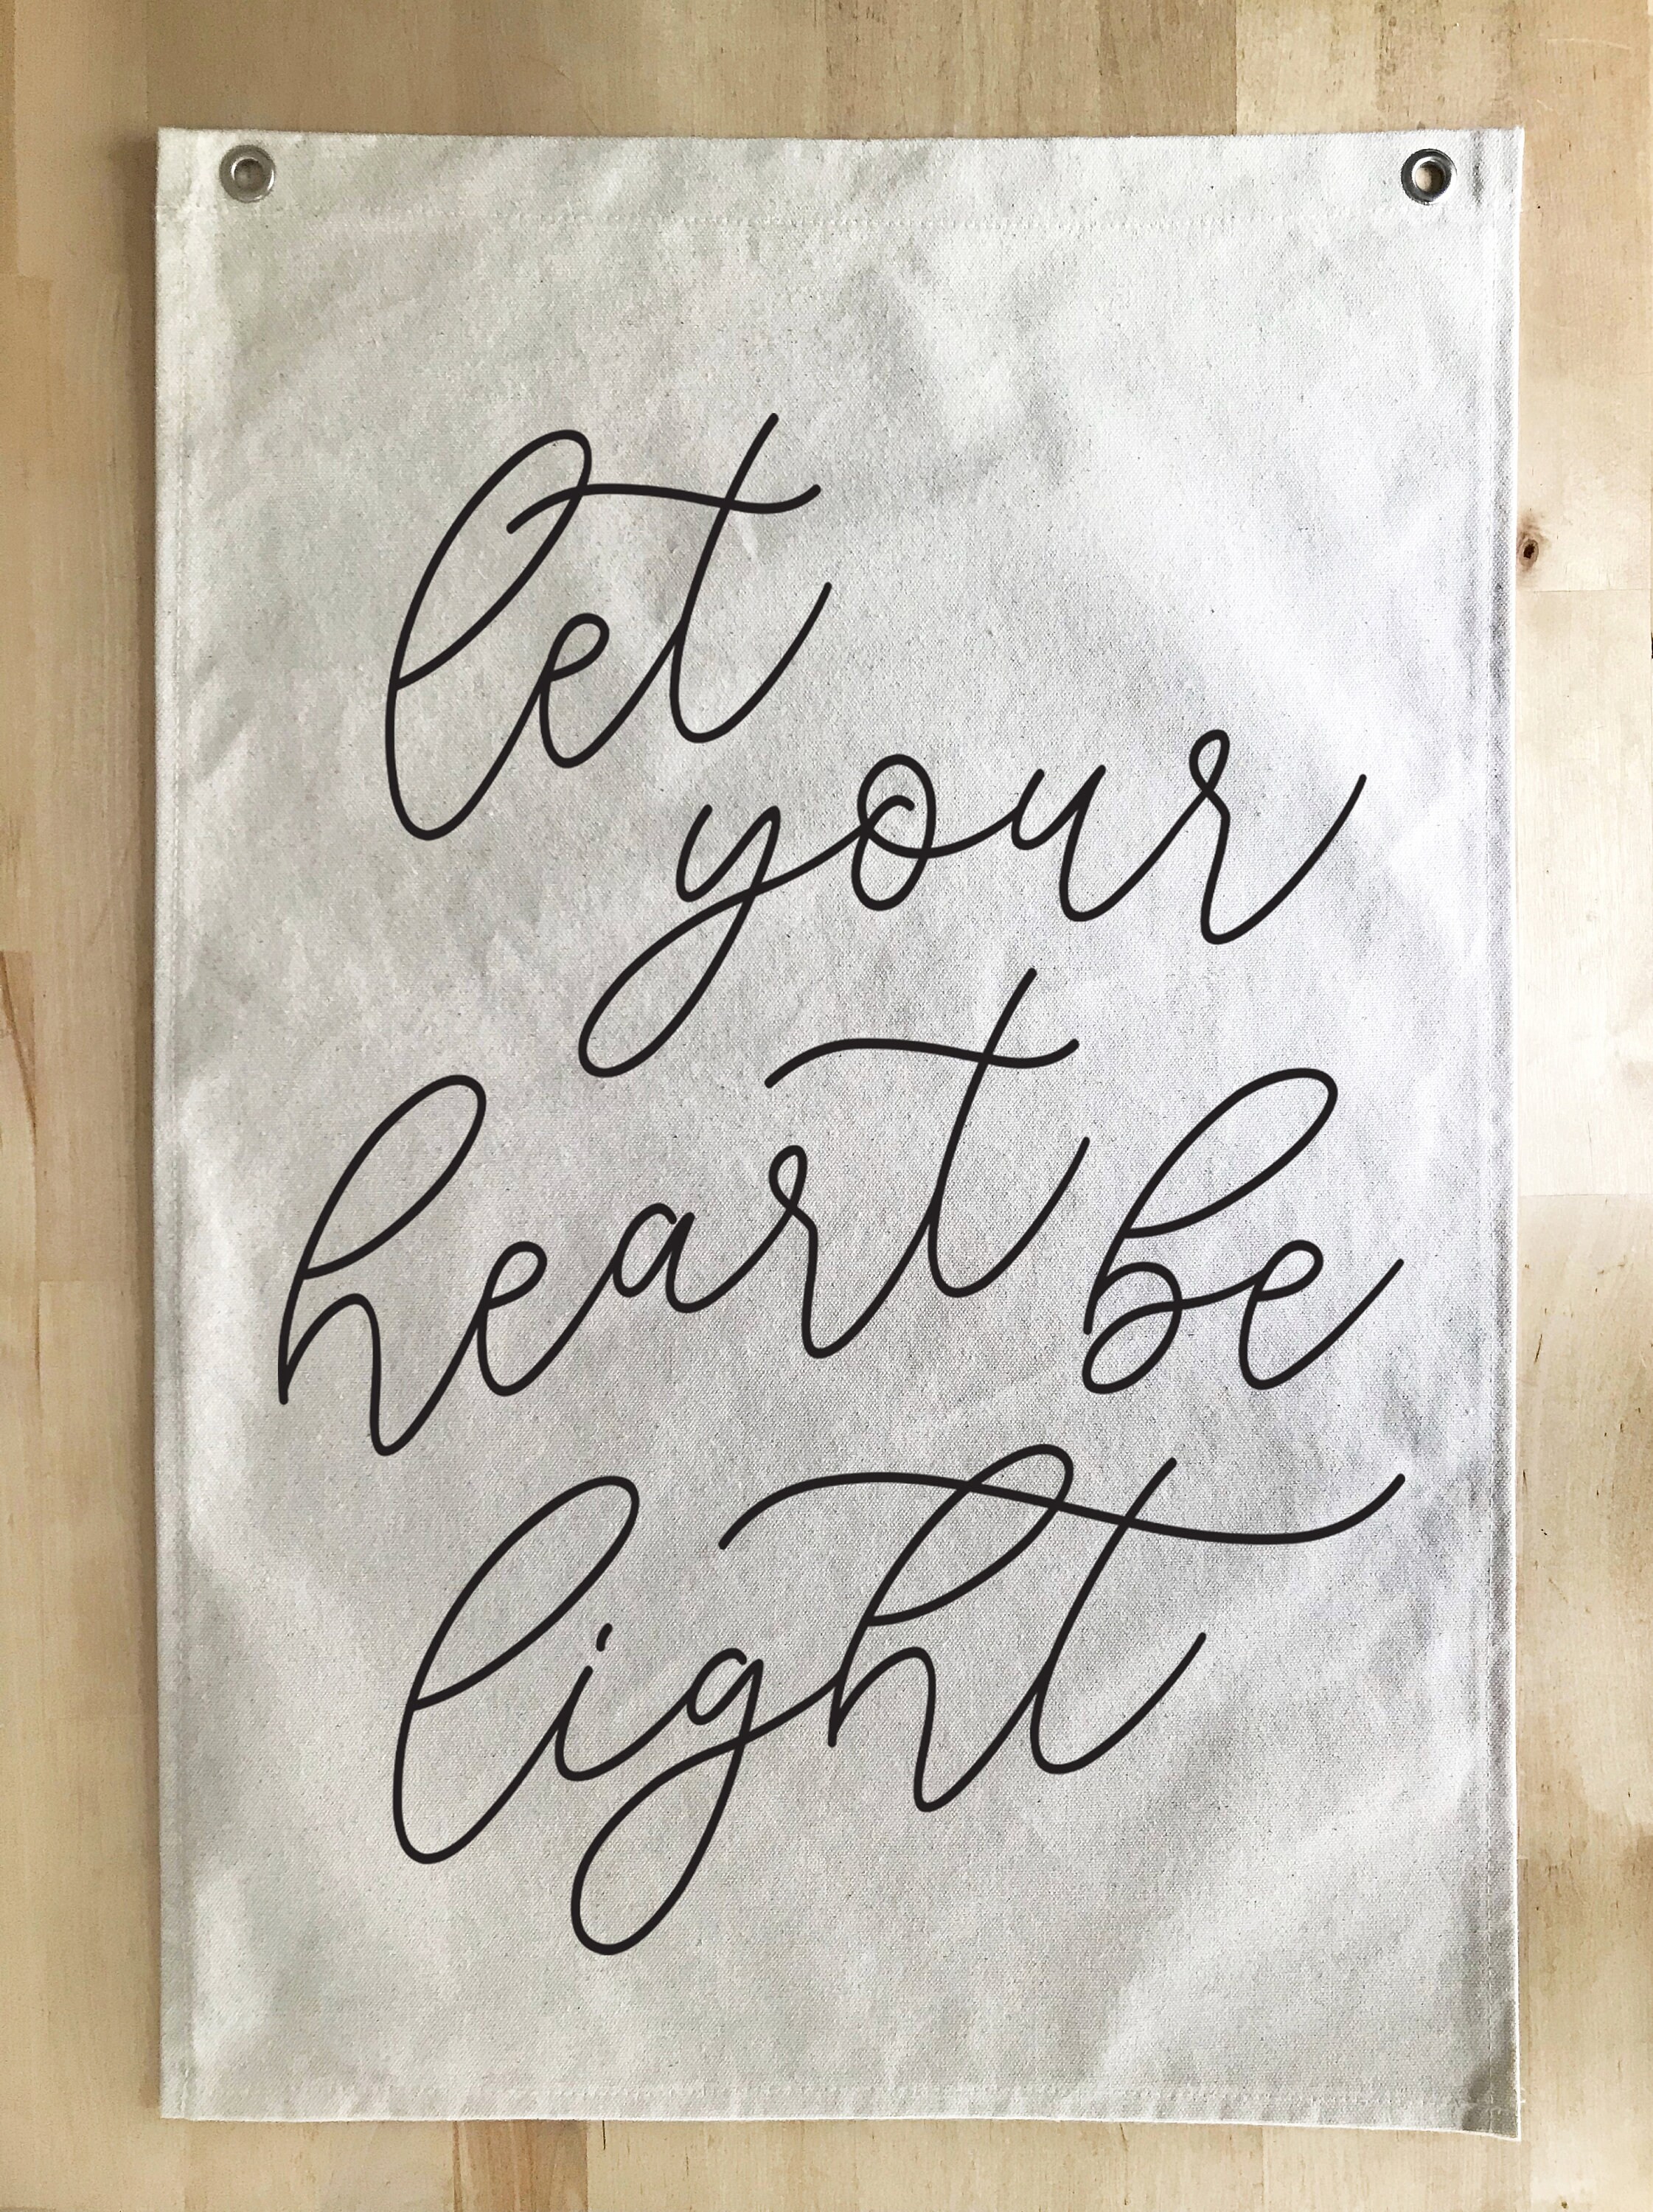 let
your
heart be
light